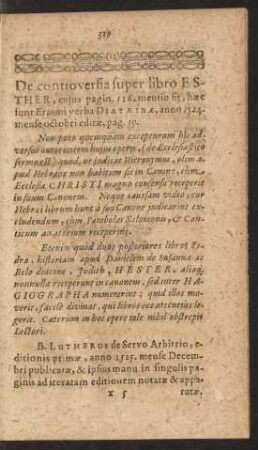 329
De controversia super libro ES-
THER, cujus pagin. 128. mentio fit, hæc
sunt Erasmi verba DIATRIBÆ, anno 1524.
mense octobri editæ, pag. 19.
Non puto quemquam excepturum hic ad-
versus autoritatem hujus operis, (de Ecclesiastico
sermo est) quod, ut indicat Hieronymus, olim a-
pud Hebræos non habitum sit in Canone, cum
Ecclesia CHRISTI magno consensu receperit
in suum Canonem. Neque causam video, cur
Hebræi librum hunc à suo Canone judicarint ex-
cludendum, cum Parabolas Salomonis, & Can-
ticum amatorium receperint.
Etenim quod duos posteriores libros Es-
dræ, historiam apud Danielem de Susanna ac
Belo dracone, Judith, HESTER, aliaq;
nonnulla receperint in canonem, sed inter HA-
GIOGRAPHA numerent: quid illos mo-
verit, facile divinat, qui libros eos attentius le-
gerit. Cæterum in hoc opere tale nihil obstrepit
lectori.
B. LUTHERUS de Servo Arbitrio, e-
ditionis primæ, anno 1525. mense Decem-
bri publicatæ, & ipsius manu in singulis pa-
ginis ad iteratam editionem notatæ & appa-
x 5 ratæ,